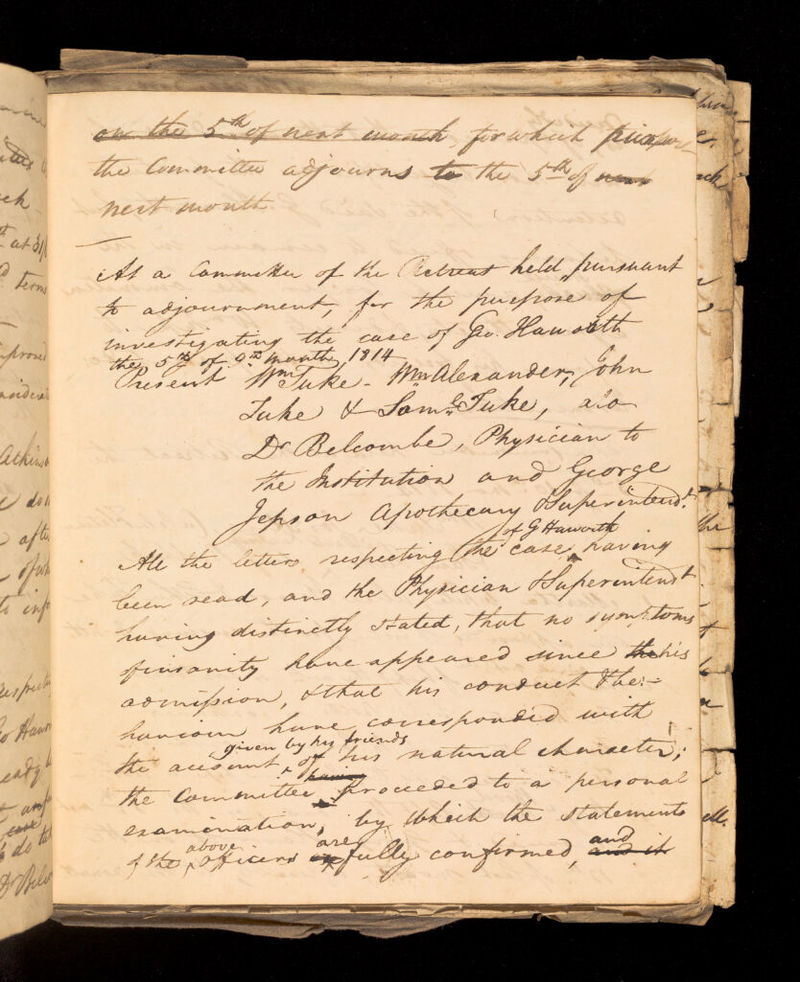 on the 5th of next month, for which purpose
the Committee adjourns to the 5th of next
next month
At a Committee of the Retreat held pursuant
to adjournment, for the purpose of
investigating the case of Geo. Haworth
the 5th of 9th month, 1814
Present Wm Tuke - Wm Alexander, John
Tuke & Saml Tuke, also
Dr Belcombe, Physician to
the Institution and George
Jepson Apothecary & Superintendt.
of G Haworth
All the letters respecting the case having
been read, and the Physician & Superintendt
having distinctly stated, that no symptoms
of insanity have appeared since the his
admission, & that his conduct & be-
haviour have corresponded with
given by his friends
the account of his natural character;
having
the Committee proceeded to a personal
examination, by which the statements
above are and
of the officers fully confirmed, and it
at 3/
terms
Dr Bel